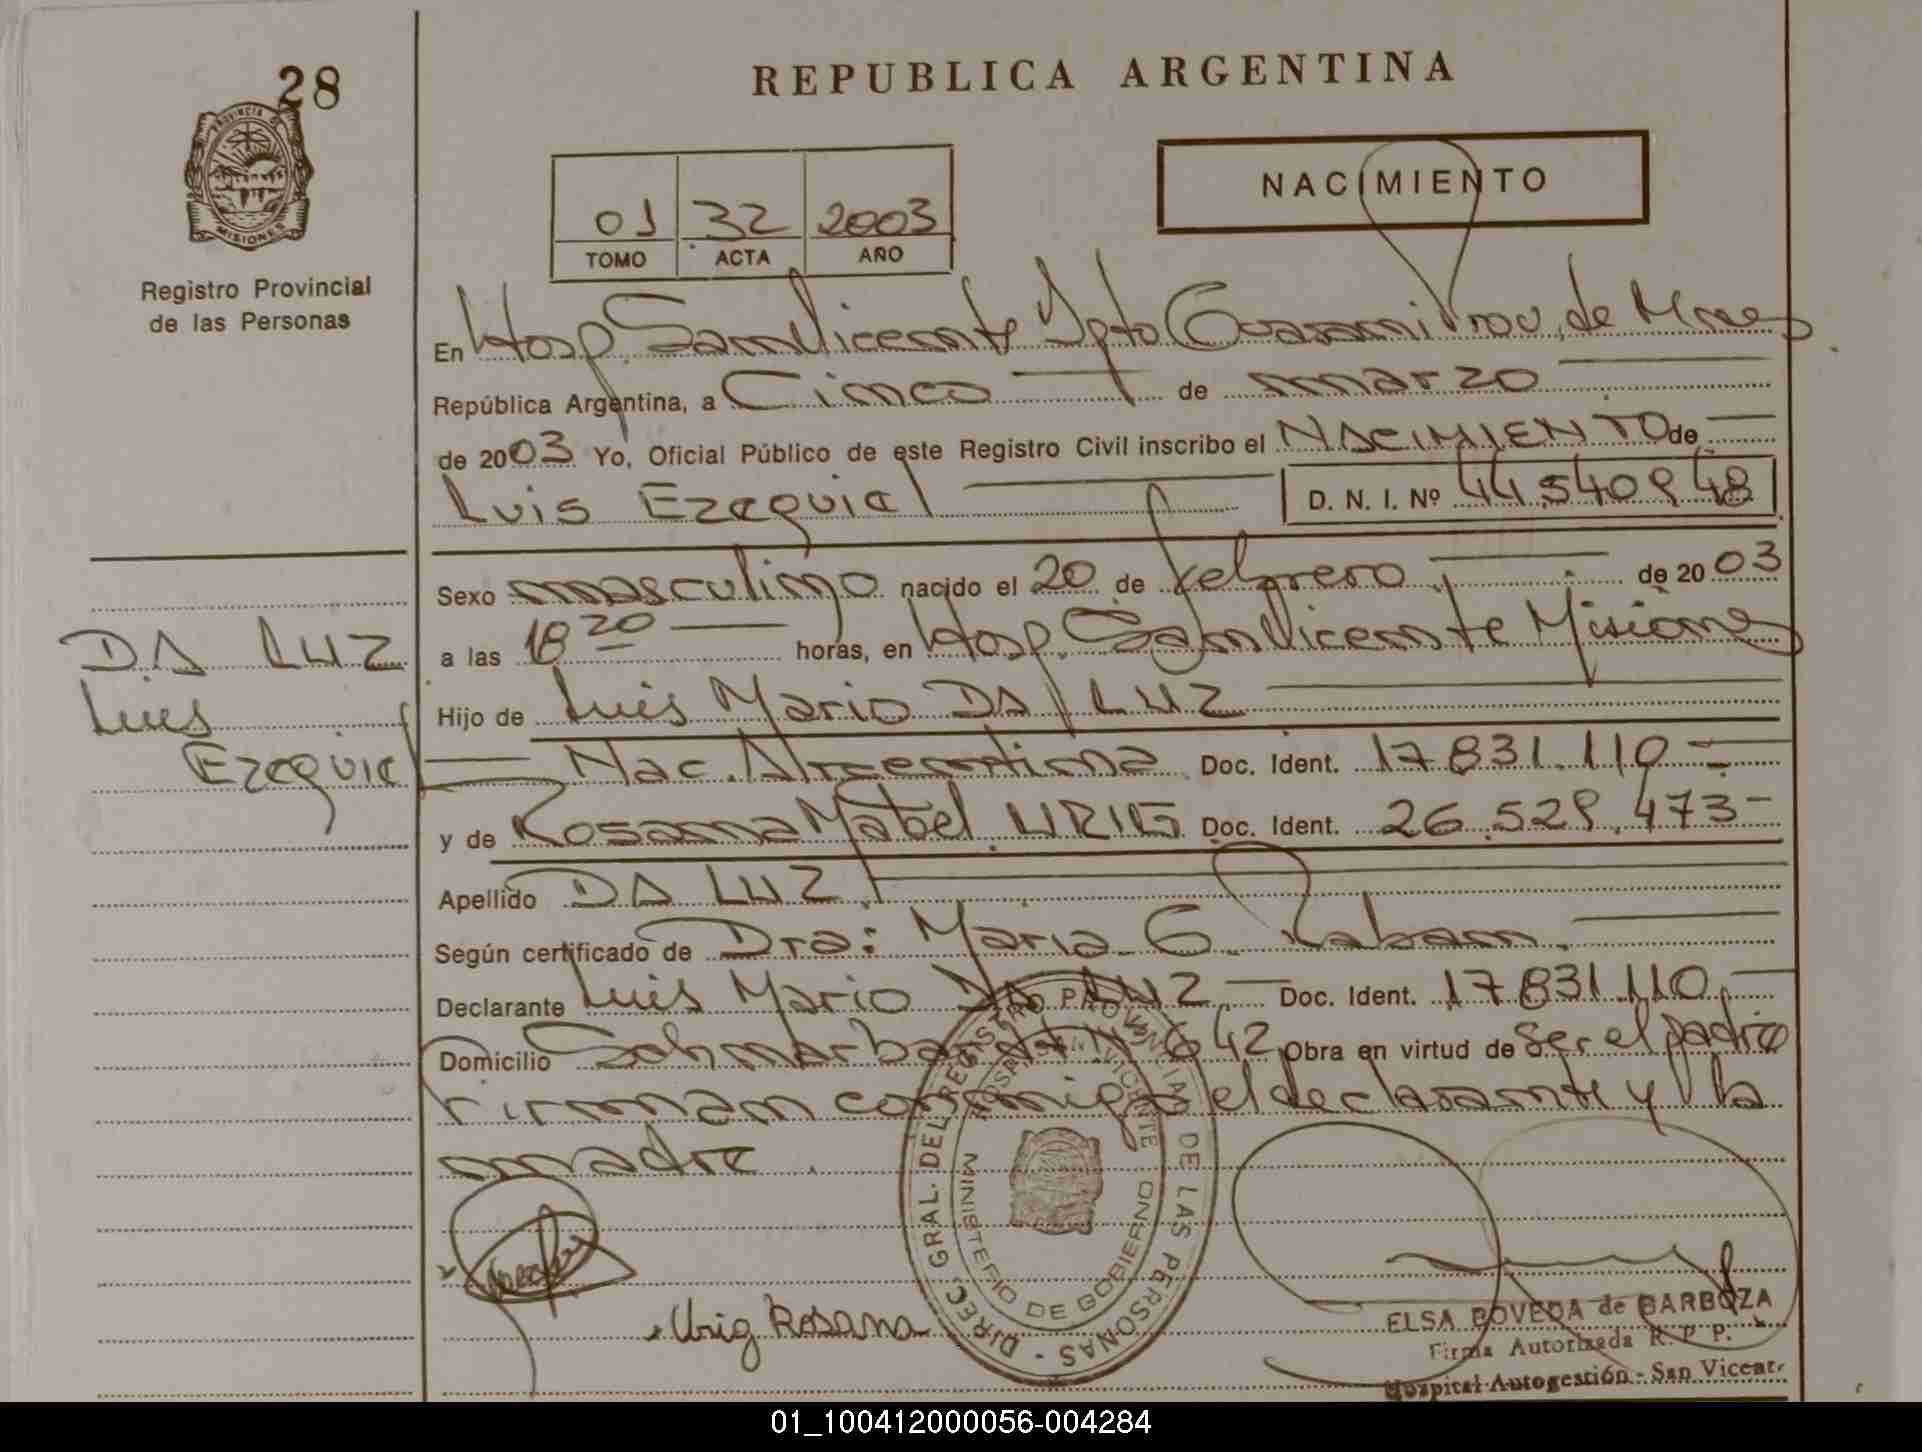 28
REPUBLICA ARGENTINA
PROVINCIA DE
MISIONES
Registro Provincial
de las Personas
NACIMIENTO
01 32 2003
TOMO ACTA AÑO
En Hosp. San Vicente Dpto Guaraní Prov. de Mnes
República Argentina, a Cinco de marzo
de 2003 Yo, Oficial Público de este Registro Civil inscribo el NACIMIENTO de
Luis Ezequiel D. N. I. Nº 44.540.948
Sexo masculino nacido el 20 de febrero de 2003
a las 18 20 horas, en Hosp. San Vicente Misiones
DA LUZ
Luis
Ezequiel
Hijo de Luis Mario DA LUZ
Nac. Argentina Doc. Ident. 17.831.110
y de Rosana Mabel URIG Doc. Ident. 26.529.473
Apellido DA LUZ
Según certificado de Dra: Maria G.
Declarante Luis Mario DA LUZ Doc. Ident. 17.831.110
Domicilio Nº 642 Obra en virtud de ser el padre
Firman conmigo el declarante y la
madre.
Urig Rosana
DIREC. GRAL. DEL REGISTRO PROVINCIAL DE LAS PERSONAS
HOSP. SAN VICENTE
MINISTERIO DE GOBIERNO
ELSA BOVEDA de BARBOZA
Firma Autorizada R. P. P.
Hospital Autogestión - San Vicente
01_100412000056-004284